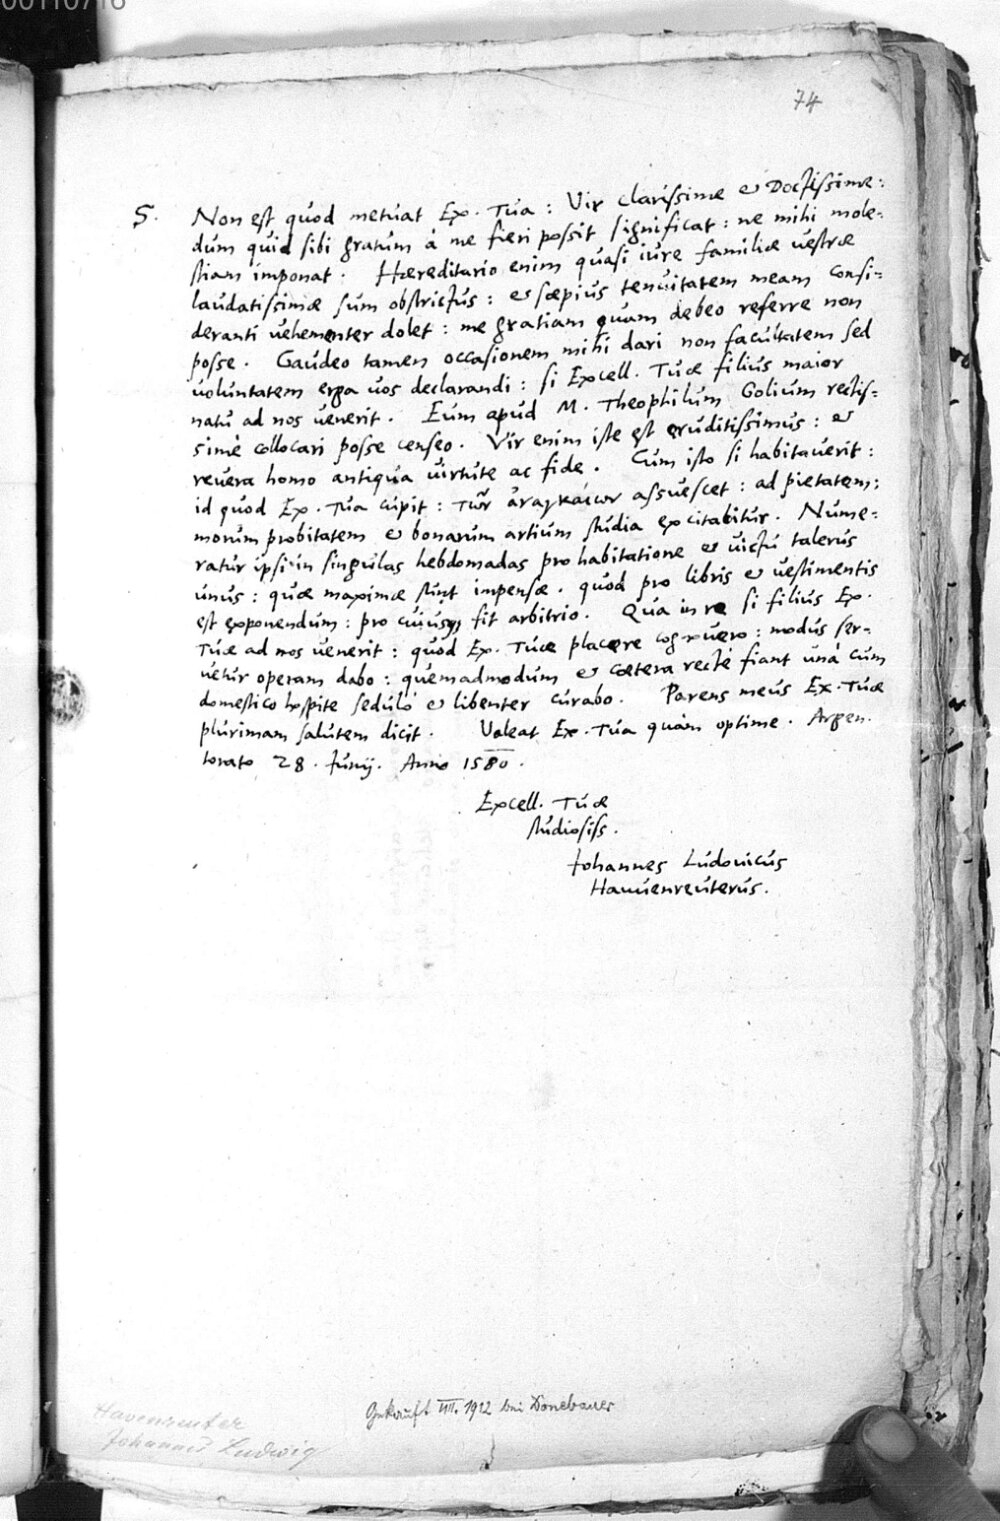 00110716
74
S. Non est quod metuat Ex. Tua: Vir clarissime et Doctissime:
dum quid sibi gratum à me fieri possit significat: ne mihi mole=
stiam imponat. Hæreditario enim quasi iure familiæ uestræ
laudatissimæ sum obstrictus: et sæpius tenuitatem meam consi=
deranti uehementer dolet: me gratiam quam debeo referre non
posse. Gaudeo tamen occasionem mihi dari non facultatem sed
uoluntatem erga uos declarandi: si Excell. Tuæ filius maior
natu ad nos uenerit. Eum apud M. Theophilum Golium rectis=
simè collocari posse censeo. Vir enim iste est eruditissimus: et
reuera homo antiqua uirtute ac fide. Cum isto si habitauerit:
id quod Ex. Tua cupit: τῶν ἀναγκαίων assuescet: ad pietatem:
morum probitatem et bonarum artium studia excitabitur. Nume=
ratur ipsi in singulas hebdomadas pro habitatione et uictu talerus
unus: quæ maximæ sunt inpensæ. quod pro libris et uestimentis
est exponendum: pro cuiusq; fit arbitrio. Qua in re si filius Ex.
Tuæ ad nos uenerit: quod Ex. Tuæ placere cognouero: modus ser=
uetur operam dabo: quemadmodum et cætera rectè fiant unà cum
domestico hospite sedulò et libenter curabo. Parens meus Ex. Tuæ
plurimam salutem dicit. Valeat Ex. Tua quàm optime. Argen.
torato 28. Junij. Anno 1580.
Excell. Tuæ
studiosiss.
Johannes Ludouicus
Hauuenreuterus.
Gekauft VII. 1912 bei Donebauer
Havenreuter
Johannes Ludwig